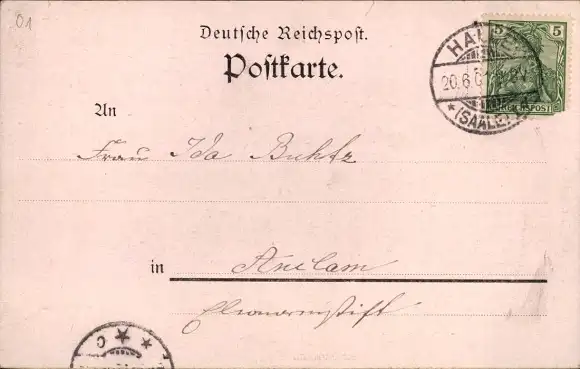 01
Deutsche Reichspost.
Postkarte.
5 5
HALLE
20.6.0
* (SAALE) *
REICHSPOST
An
Frau Ida Buhtz
in Anclam
C